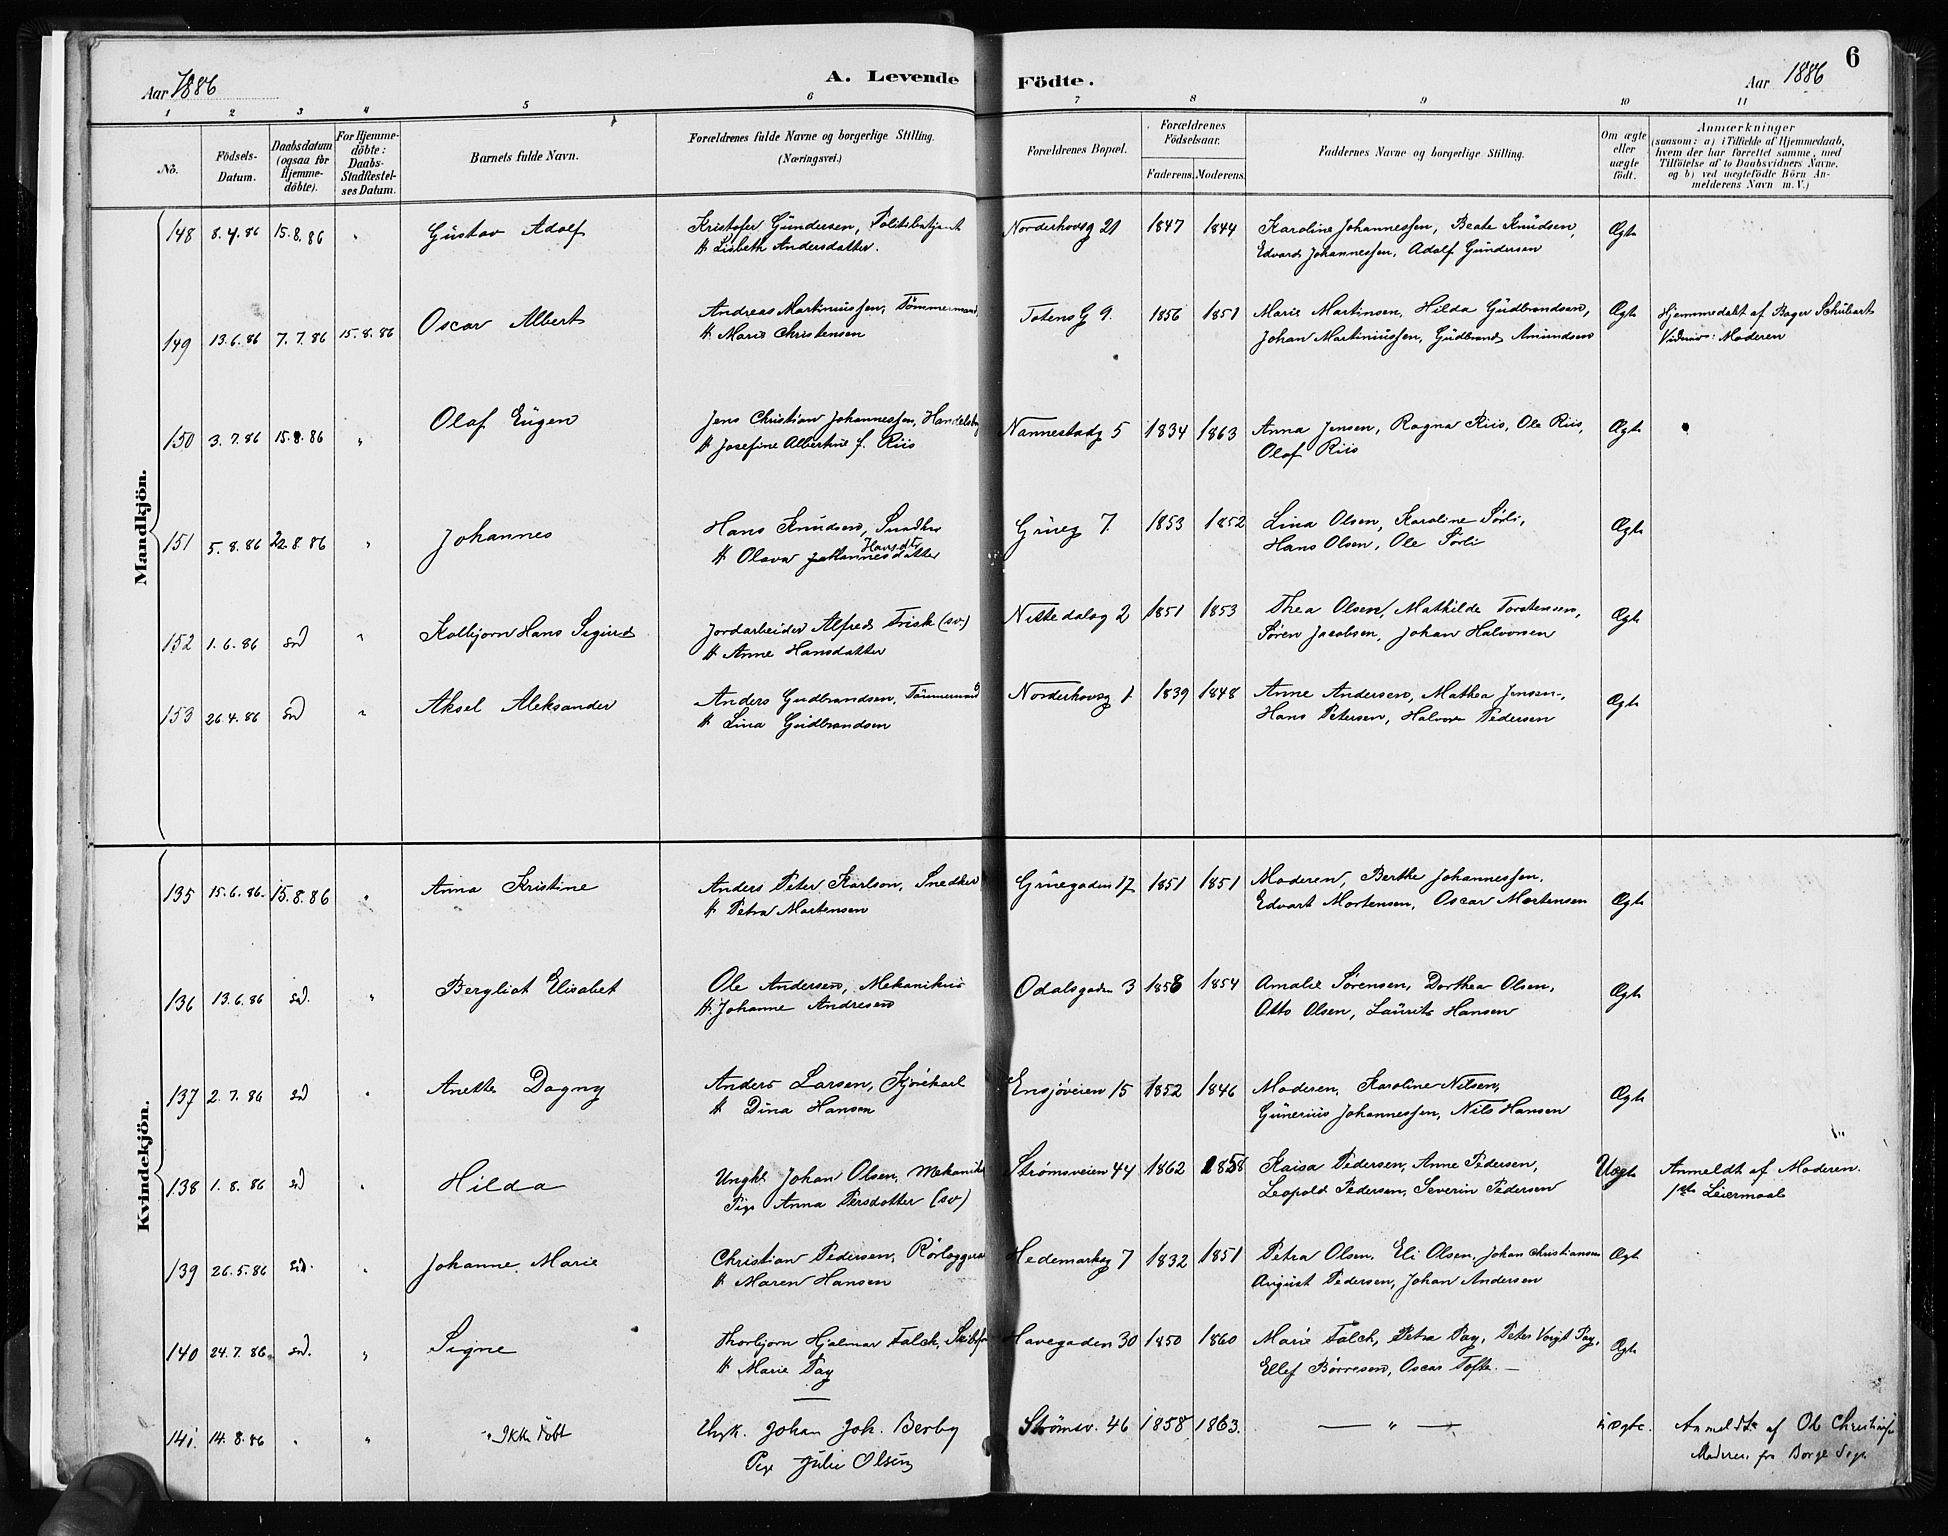 6
Aar 1886 A. Levende Födte. Aar 1886
1 2 3 4 5 6 7 8 9 10 11
No. Födsels-Datum. Daabsdatum (ogsaa for Hjemme-döbte). For Hjemme-döbte: Daabs-Stadfæstel-ses Datum. Barnets fulde Navn. Forældrenes fulde Navne og borgerlige Stilling. (Næringsvei.) Forældrenes Bopæl. Forældrenes Födselsaar. Faderens. Moderens. Faddernes Navne og borgerlige Stilling. Om ægte eller uægte födt. Anmærkninger (saasom: a) i Tilfælde af Hjemmedaab, hvem der har forrettet samme, med Tilföielse af to Daabsvidners Navne, og b) ved uægtefödte Börn An-melderens Navn m. V.)
Mandkjön.
148 8.4.86 15.8.86 " Gustav Adolf Kristofer Gundersen, Politibetjent Norderhovsg 21 1847 1844 Karoline Johannessen, Beate Knudsen, Ægte
H Lisbeth Andersdatter. Edvard Johannessen, Adolf Gundersen
149 13.6.86 7.7.86 15.8.86 Oscar Albert Andreas Martiniussen, Tömmermand Totens G 9. 1856 1851 Marie Martinsen, Hilda Gudbrandsen, Ægte Hjemmedøbt af Bager Schubart
H Marie Christensen Johan Martiniussen, Gudbrand Amundsen Vidner: Moderen
150 3.7.86 15.8.86 " Olaf Eugen Jens Christian Johannessen, Handelsb Nannestadg 5 1834 1863 Anna Jensen, Ragna Riis, Ole Riis, Ægte
H Josefine Albertine f. Riis Olaf Riis
151 5.8.86 22.8.86 " Johannes Hans Knudsen, Snedker Grüeg 7. 1853 1852 Lina Olsen, Karoline Sørli, Ægte
H Olava Johannesdatter Hansdt Hans Olsen, Ole Sørli
152 1.6.86 sd " Kolbjorn Hans Sigurd Jordarbeider Alfred Frisk (sv.) Nittedalsg 2 1851 1853 Thea Olsen, Mathilde Torstensen, Ægte
H Anne Hansdatter Sören Jacobsen, Johan Halvorsen
153 26.4.86 sd " Aksel Aleksander Anders Gudbrandsen, Tömmermand Norderhovsg 1 1839 1848 Anne Andersen, Mathea Jensen, Ægte
H Lina Gudbrandsen Hans Petersen, Halvor Pedersen
Kvindekjön.
135 15.6.86. 15.8.86 " Anna Kristine Anders Peter Karlson, Snedker Grüegaden 17 1851 1851 Moderen, Berthe Johannessen, Ægte
H Petra Mortensen Edvart Mortensen, Oscar Mortensen
136 13.6.86 sd. " Bergliot Elisabet Ole Andersen, Mekanikus Odalsgaden 3 1858 1854 Amalie Sörensen, Dorthea Olsen, Ægte
H. Johanne Andresen Otto Olsen, Laurits Hansen
137 2.7.86 sd " Anette Dagny Anders Larsen, Kjørekarl Ensjøveien 15 1852 1846 Moderen, Karoline Nilsen, Ægte
H Dina Hansen Gunerius Johannessen, Nils Hansen
138 1.8.86 sd " Hilda Ungk Johan Olsen, Mekanik Strømsveien 44 1862 1858 Kaisa Pedersen, Anne Pedersen, Uægte Anmeldt af Moderen.
Pige Anna Persdotter (sv) Leopold Pedersen, Severin Pedersen 1ste Leiermaal
139 26.5.86 sd. " Johanne Marie Christian Pedersen, Rörlægger Hedemarksg 7 1832 1851 Petra Olsen, Eli Olsen, Johan Christiansen Ægte
H Maren Hansen August Pedersen, Johan Andersen
140 24.7.86. sd. " Signe Thorbjorn Hjalmar Falch, Skibsfø Havegaden 30 1850 1860 Marie Falch, Petra Pay, Peter Voigt Pay, Ægte
H Marie Pay Ellef Börresen, Oscar Tofte. —
141. 14.8.86 " " Ikke døbt Ungk. Johan Joh. Berby Strömsv. 46 1858 1863. — " — uægte. Anmeldt af Ole Christians
Pige Julie Olsen Moderen fra Borge Sogn